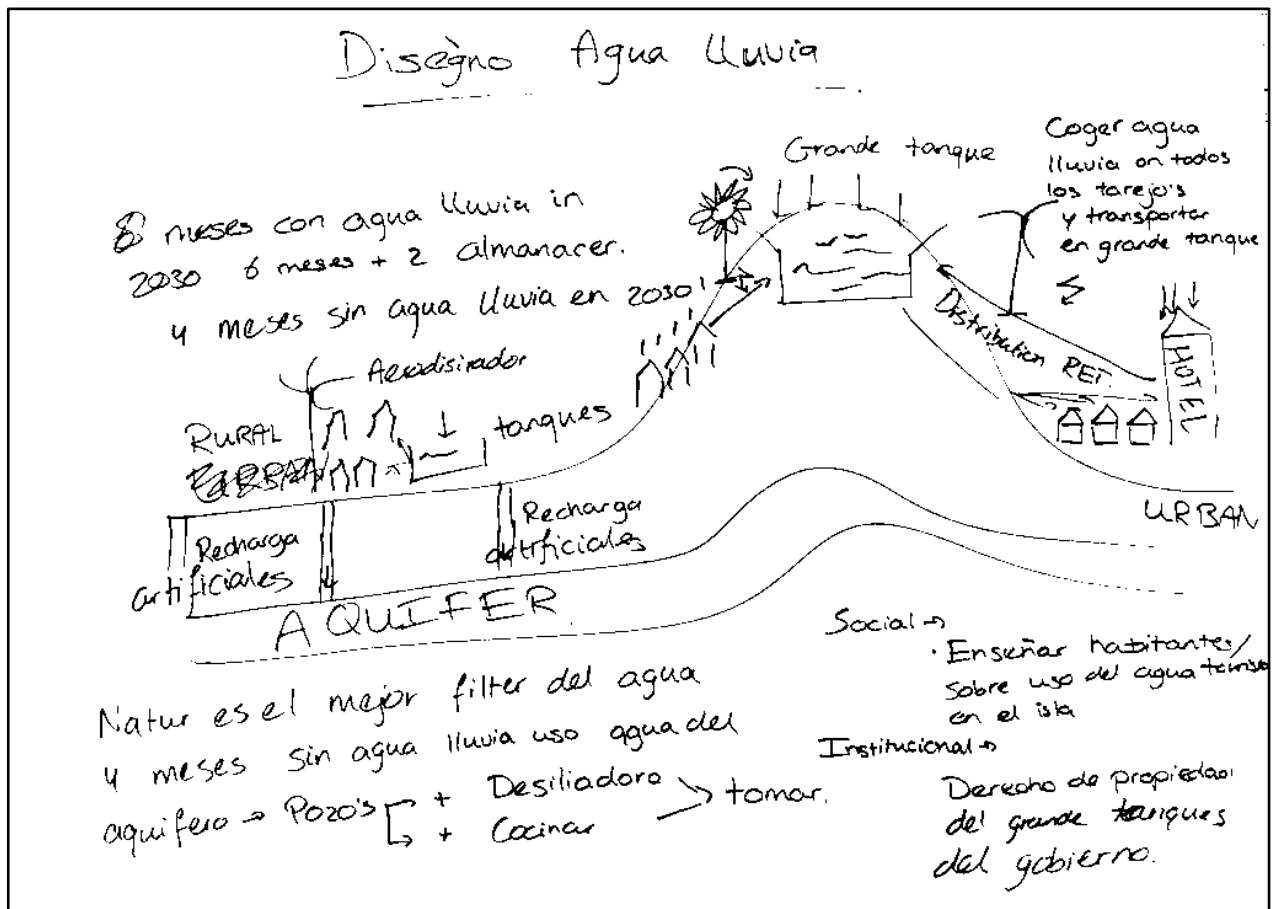 Disègno Agua lluvia
8 meses con agua lluvia in
2030 6 meses + 2 almanacer.
4 meses sin agua lluvia en 2030!
Grande tanque
Coger agua
lluvia on todos
los tarejo's
y transporter
en grande tanque
Aerodisirador
RURAL
tanques
Distribution RET.
HOTEL
URBAN
Recharga
artificiales
Recharga
artificiales
AQUIFER
Natur es el mejor filter del agua
4 meses sin agua lluvia uso agua del
aquifero → Pozo's + Desiliadora
+ Cocinar
tomar.
Social →
· Enseñar habitantes/
sobre uso del agua
en el isla
Institucional →
Derecho de propiedad
del grande tanques
del gobierno.